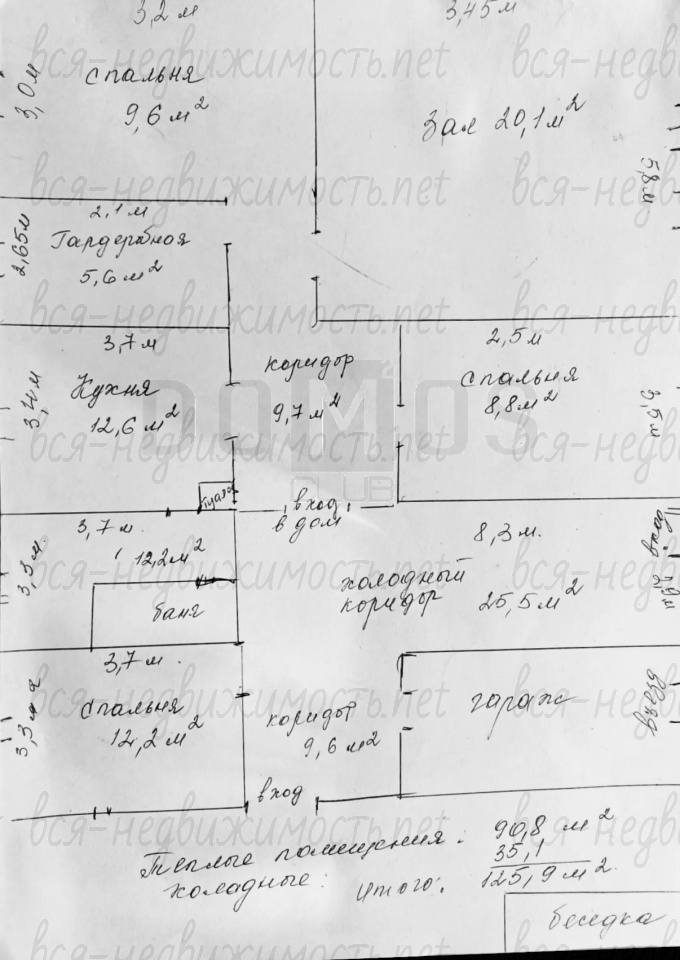 3,2 м
3,45 м
3,0 м
спальня
9,6 м²
Зал 20,1 м²
5,8 м
2,65 м
2,1 м
Гардеробная
5,6 м²
3,4 м
3,7 м
Кухня
12,6 м²
коридор
9,7 м²
2,5 м
спальня
8,8 м²
3,5 м
туалет
вход
в дом
3,3 м.
3,7 м.
12,2 м²
баня
8,3 м.
холодный
коридор 25,5 м²
вход
3,3 м
3,7 м.
спальня
12,2 м²
коридор
9,6 м²
вход
гараж
въезд
Теплые помещения: 90,8 м²
холодные: 35,1
Итого: 125,9 м².
беседка
вся-недвижимость.net
DOMOS
CLUB